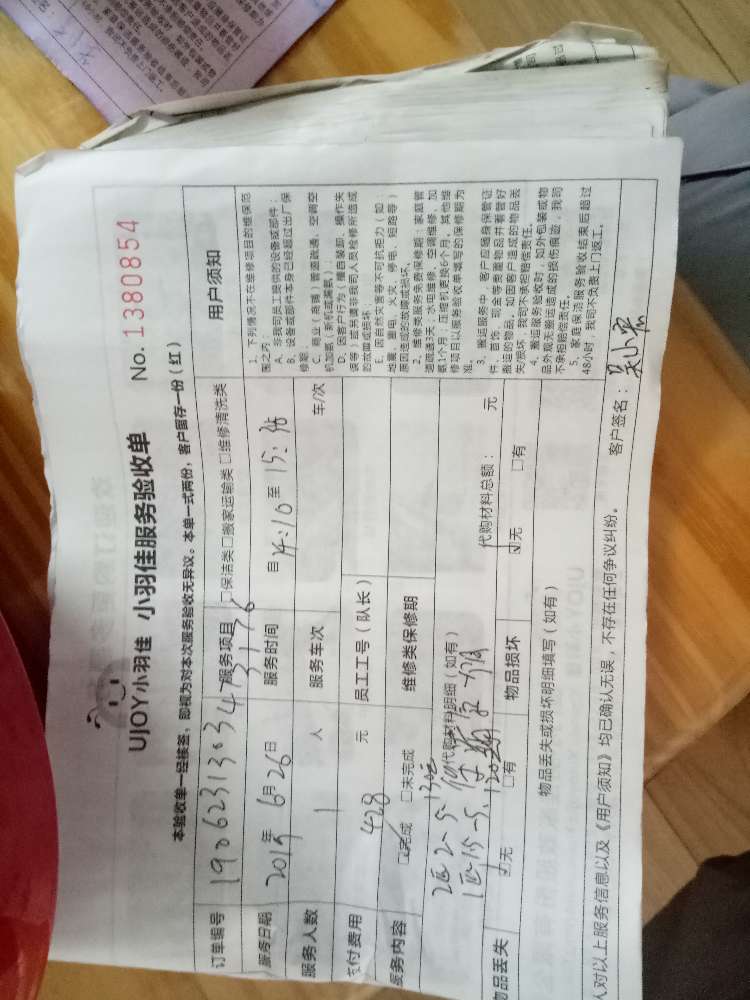 UJOY小羽佳 小羽佳服务验收单 No. 1380854
本验收单一经接签，即视为对本次服务验收无异议。本单一式两份，客户留存一份（红）
订单编号 190623130347 3176 服务项目 □保洁类□搬家运输类□维修清洗类
服务日期 2019年6月26日 服务时间 自14:10至15:
服务人数 1 人 服务车次 车/次
支付费用 428 元 员工工号（队长）
服务内容 ☑完成 □未完成 维修类保修期
代购材料明细（如有） 代购材料总额： 元
物品丢失 ☑无 □有 物品损坏 ☑无 □有
物品丢失或损坏明细填写（如有）
用户须知
1、下列情况不在维修项目的维保范
围之内：
A、非我司员工提供的设备或部件；
B、设备或部件本身已经超过出厂保
修期；
C、商业（商铺）管道疏通、空调空
机加氨（新机或漏氨）；
D、因客户行为（擅自装卸、操作失
误等）或另请非我司人员检修所造成
的故障或损坏
E、因自然灾害等不可抗拒力（如：
地震、雷电、火灾、停电、短路等）
原因造成的故障或损坏。
2、维修类服务免费保修期：家庭管
道疏通3天；水电维修、空调维修、加
氨1个月；压缩机更换6个月，其他维
修项目以服务验收单填写的保修期为
准。
3、搬运服务中，客户应随身保管证
件、首饰、现金等贵重物品并看管好
搬运的物品，如因客户造成的物品丢
失损坏，我司不承担赔偿责任。
4、搬运服务验收时，如外包装或物
品外观无搬运造成的损伤痕迹，我司
不承担赔偿责任。
5、家庭保洁服务验收结束后超过
48小时，我司不负责上门返工。
人对以上服务信息以及《用户须知》均已确认无误，不存在任何争议纠纷。 客户签名：吴小